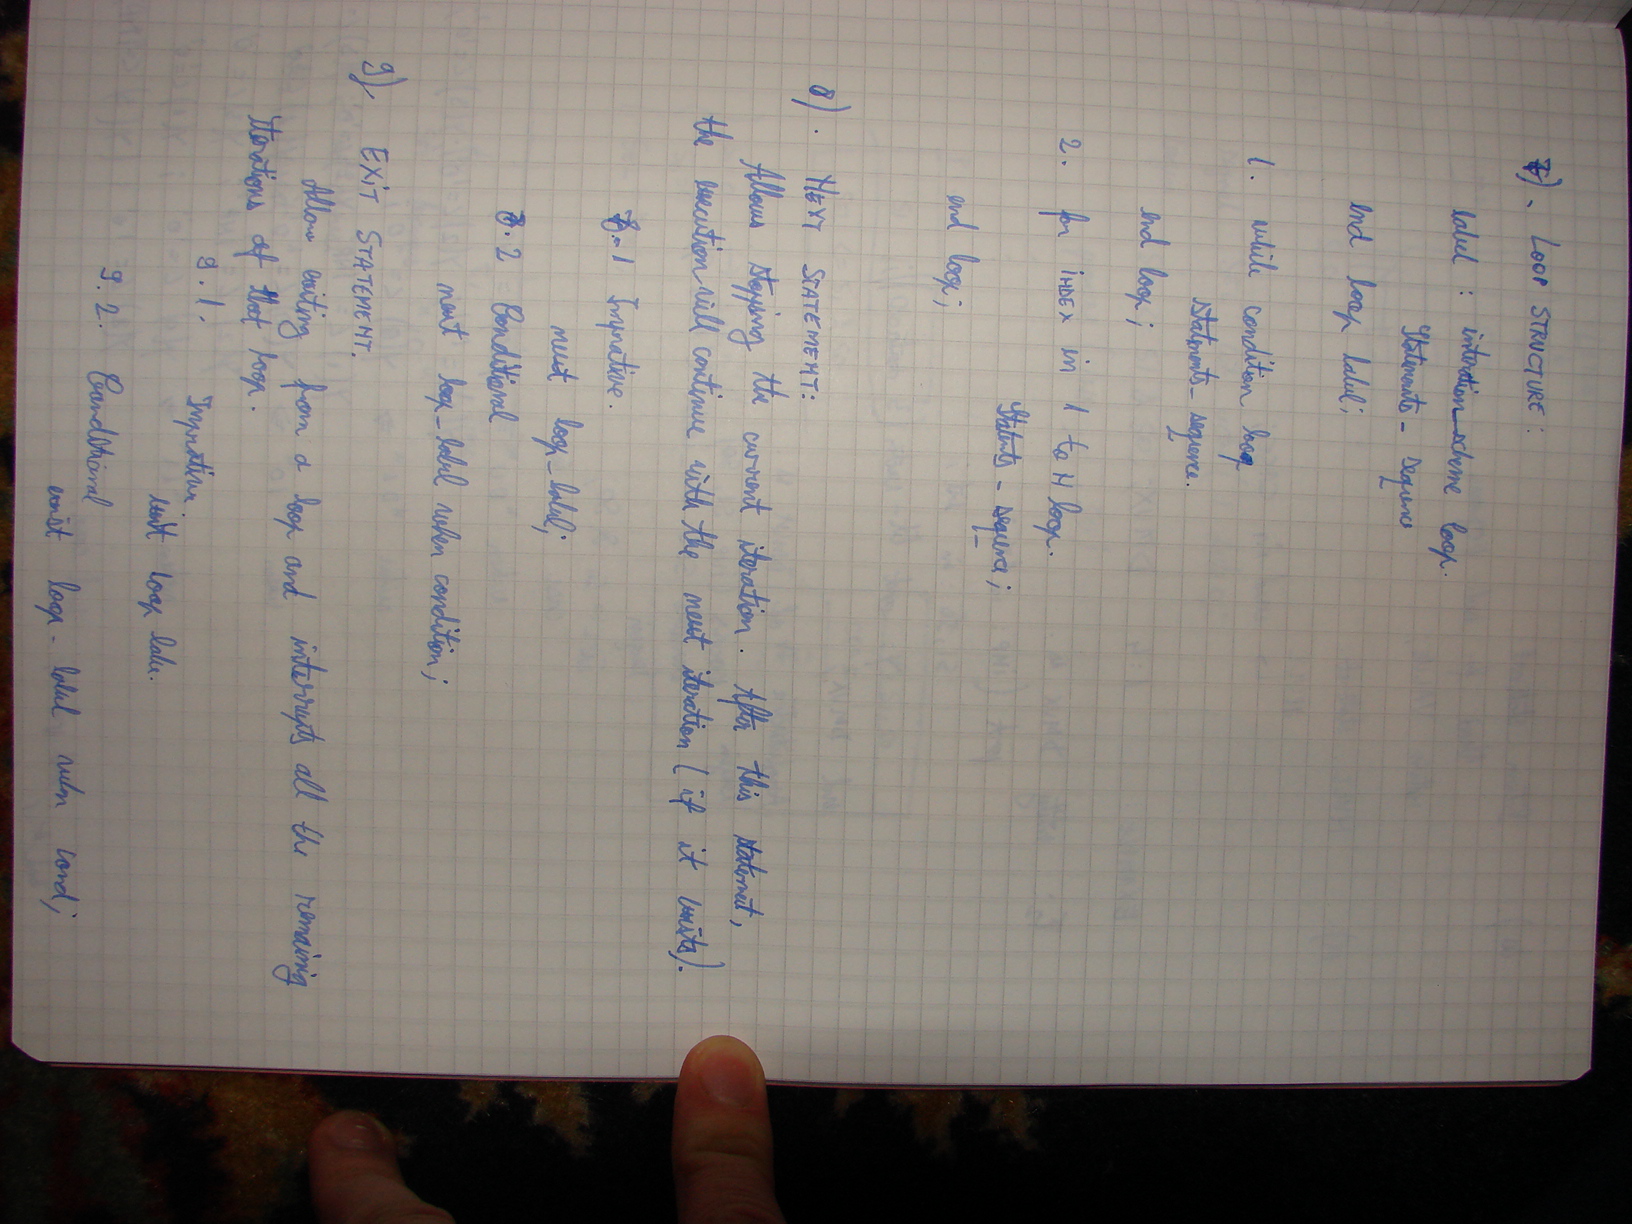 7). LOOP STRUCTURE:
label : interation_scheme loop.
statements - sequence
end loop label;
1. while condition loop
statements - sequence.
end loop;
2. for INDEX in 1 to N loop.
statents - sequence;
end loop;
8). NEXT STATEMENT:
Allows stoping the current iteration. After this statement,
the execution will continue with the next iteration (if it exists).
8.1 Imperative.
next loop_label;
8.2 Conditional
next loop_label when condition;
9). EXIT STATEMENT.
allow exiting from a loop and interrupts all the remaining
Iterations of that loop.
9.1. Imperative.
exit loop label.
9.2. Conditional
exit loop - label when cond;